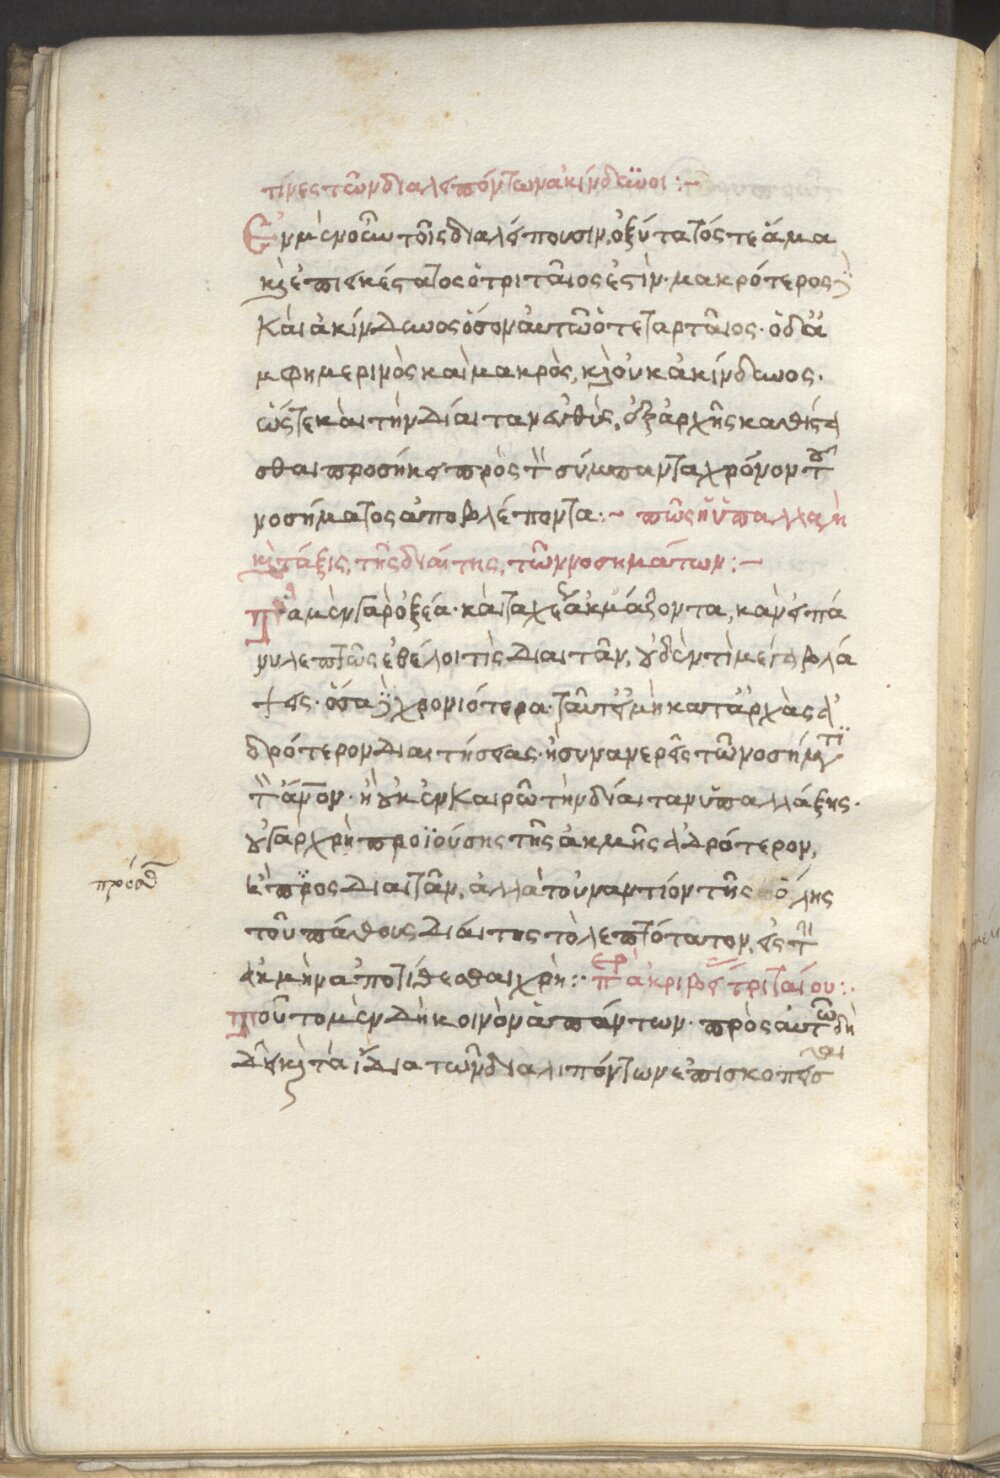 τίνες τῶν διαλειπόντων ἀκίνδυνοι :~
Ἐν μὲν οὖν τοῖς διαλείπουσιν, ὀξύτατός τε ἅμα
καὶ ἐπιεικέστατος ὁ τριταῖος ἐστίν· μακρότερος δὲ
καὶ ἀκίνδυνος ὅσον αὐτῶ ὁ τεταρταῖος· ὁ δ' ἀ
μφημερινὸς καὶ μακρὸς, καὶ οὐκ ἀκίνδυνος.
ὥστε καὶ τὴν δίαιταν εὐθὺς, ἐξ ἀρχῆς καθίστα
σθαι προσήκει πρὸς τὸν σύμπαντα χρόνον τοῦ
νοσήματος ἀποβλέποντα :~ πῶς ἡ ὑπαλλαγὴ
καὶ τάξις, τῆς διαίτης, τῶν νοσημάτων :~
Τὰ μὲν γὰρ ὀξέα· καὶ ταχέως ἀκμάζοντα, κὰν εἰ πά
νυ λεπτῶς ἐθέλοι τὶς διαιτᾶν, οὐδὲν τὶ μέγα βλά
ψεις· ὅσα δὲ χρονιότερα· ταῦτ' εἰ μὴ κατ' ἀρχὰς ἁ
δρότερον διαιτήσειας· ἢ συναναιρεῖς τῶ νοσήματι
τὸν ἄνον· ἢ οὐκ ἐν καιρῶ τὴν δίαιταν ὑπαλλάξης.
οὐ γὰρ χρὴ προϊούσης τῆς ἀκμῆς ἁδρότερον,
πρόσθ
ἢ πρὸς διαιτᾶν, ἀλλὰ τοὐναντίον τῆς ὅλης
τοῦ πάθους διαίτης τὸ λεπτότατον, εἰς τὴν
ἀκμὴν ἀποτίθεσθαι χρὴ :· περὶ ἀκριβοῦς τριταίου :·
Τοῦτο μὲν δὴ κοινὸν ἁπάντων· πρὸς αὐτῶ δὴ
δὲ καὶ τὰ ἴδια τῶν διαλιπόντων ἐπισκοπεῖσθαι